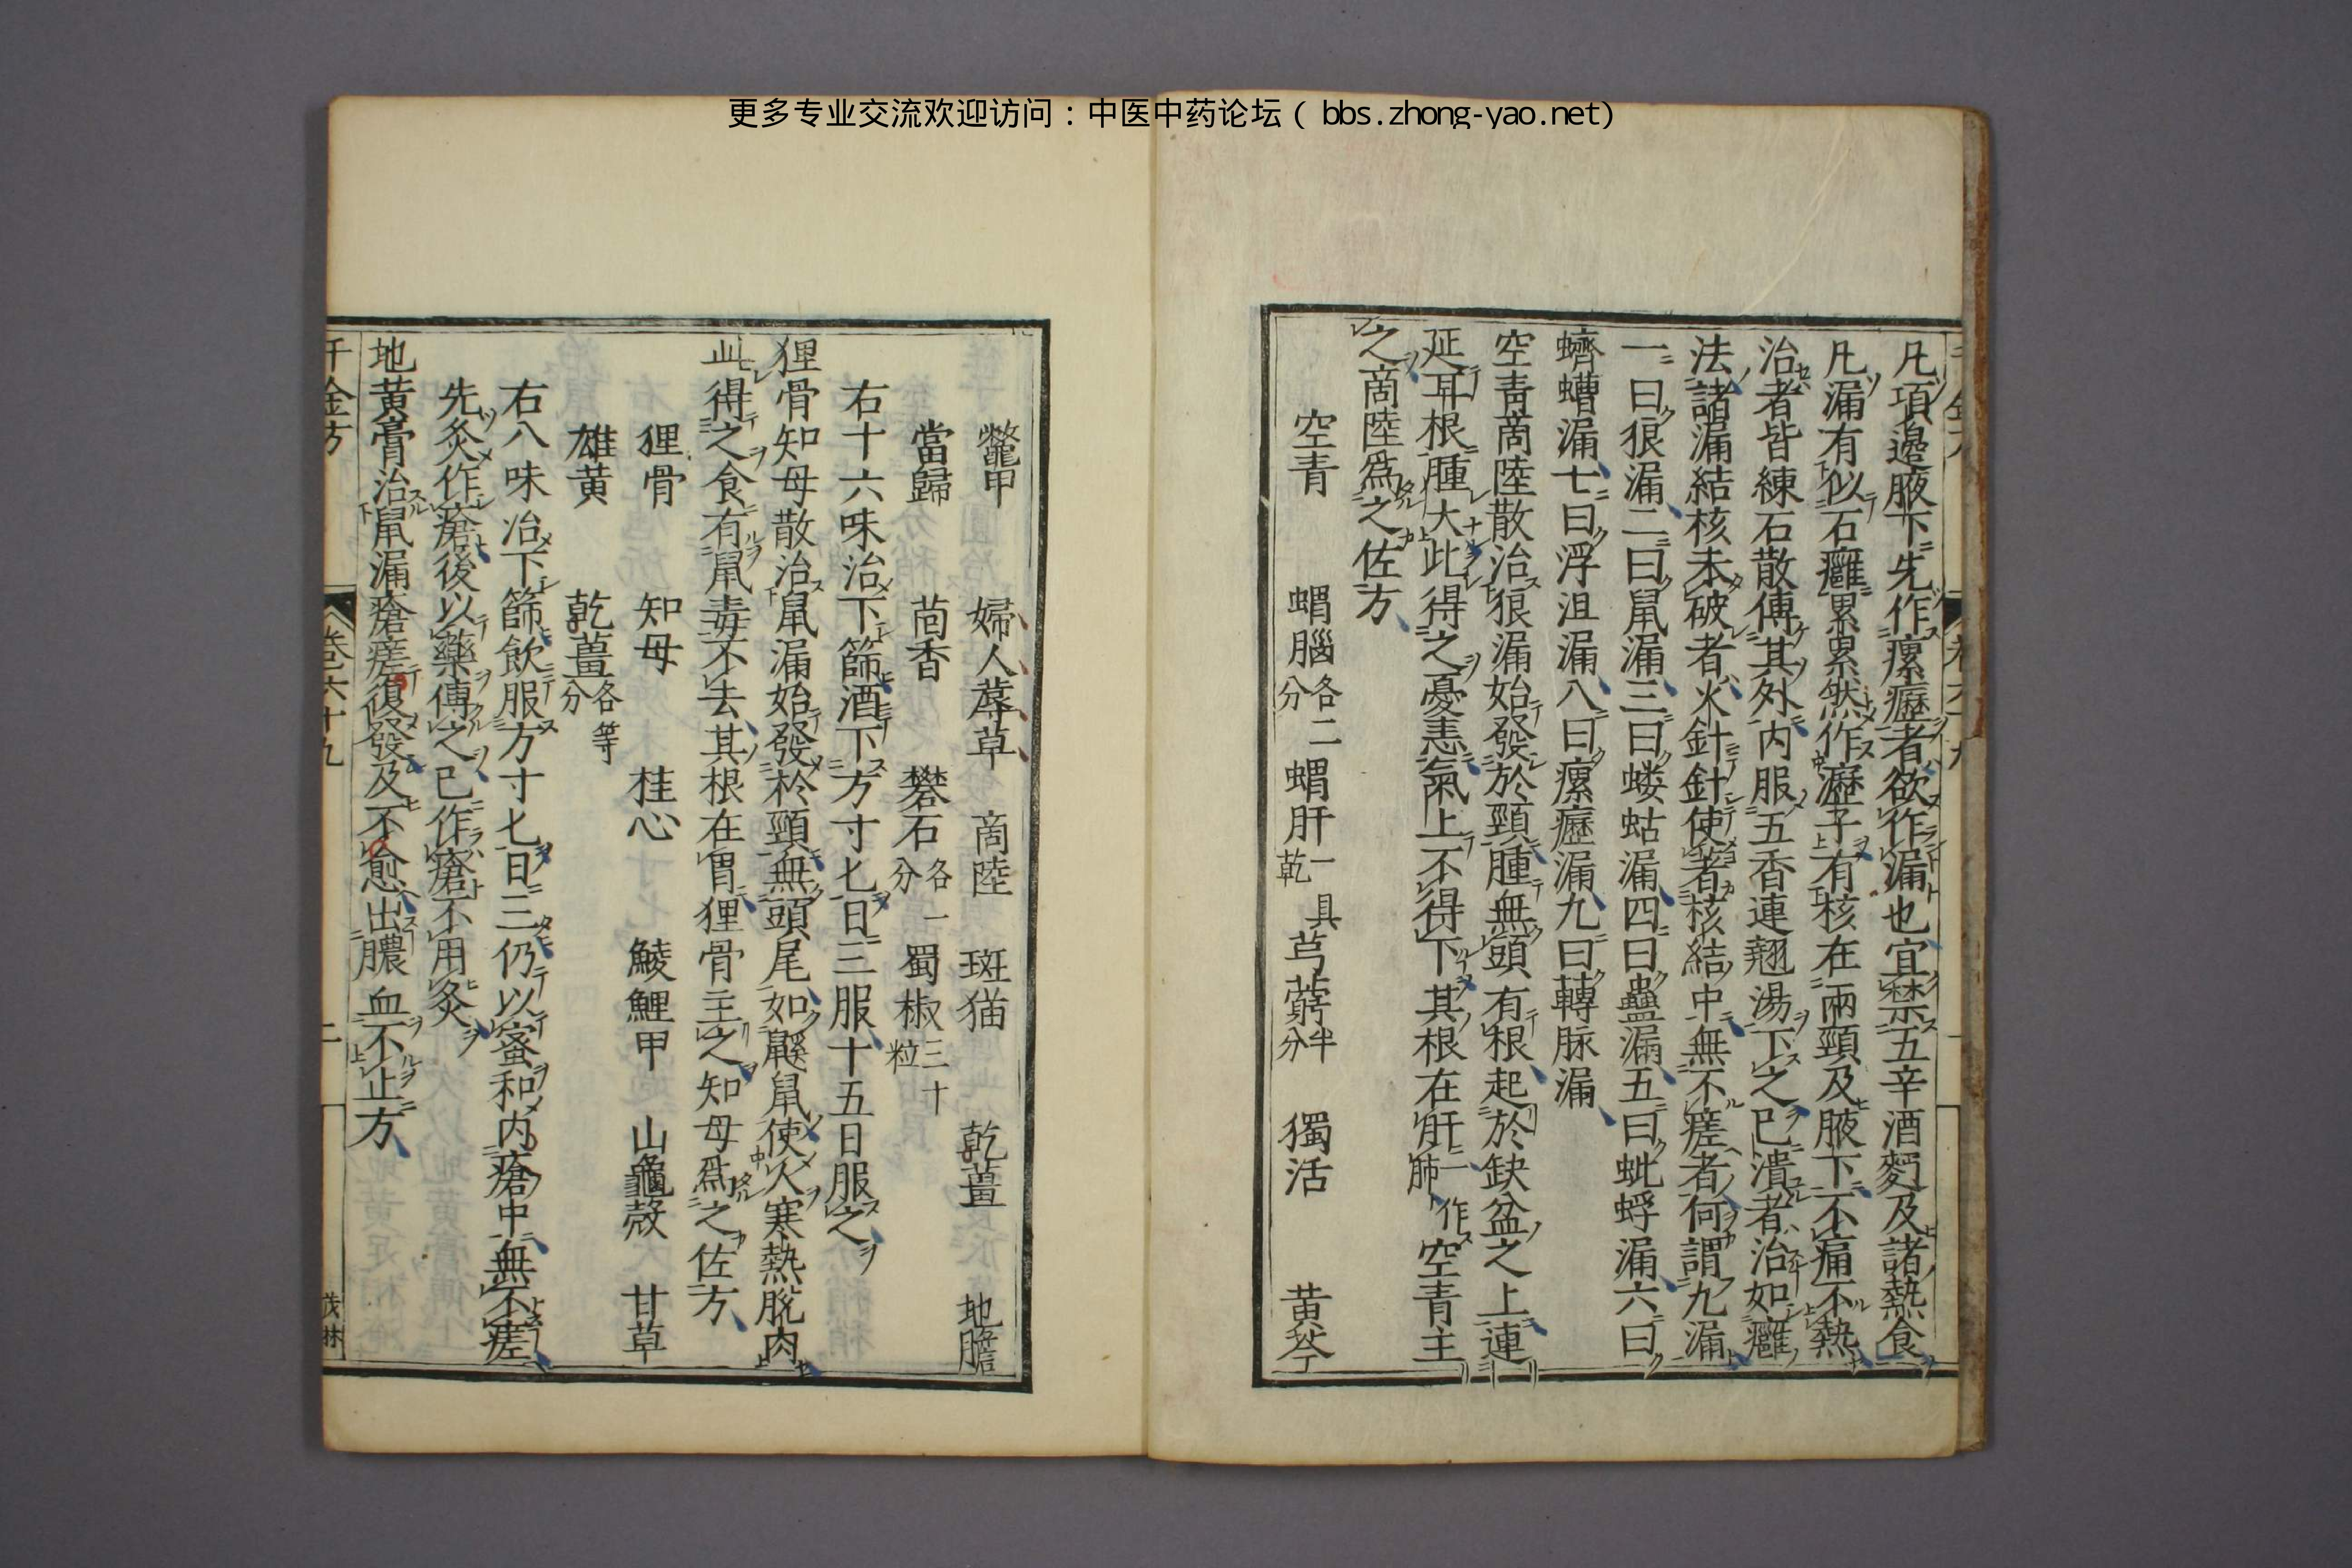 更多专业交流欢迎访问：中医中药论坛（bbs.zhong-yao.net）
凡項邉腋下先作瘰癧者欲作漏也宜禁五辛酒麪及諸熱食
凡漏有似石癰累累然作癧子有核在兩頸及腋下不痛不熱
治者皆練石散傅其外内服五香連翹湯下之已潰者治如癰
法諸漏結核未破者火針針使著核結中無不瘥者何謂九漏
一曰狼漏二曰鼠漏三曰螻蛄漏四曰蠱漏五曰蚍蜉漏六曰
蠐螬漏七曰浮沮漏八曰瘰癧漏九曰轉脉漏
空青商陸散治狼漏始發於頸腫無頭有根起於缺盆之上連
延耳根腫大此得之憂恚氣上不得下其根在肝一作肺空青主
之商陸爲之佐方
空青 蝟腦各二分 蝟肝一具乾 芎藭半分 獨活 黄芩
鱉甲 婦人蓐草 商陸 斑猫 乾薑 地膽
當歸 茴香 礬石各一分 蜀椒三十粒
右十六味治下篩酒下方寸匕日三服十五日服之
狸骨知母散治鼠漏始發於頸無頭尾如鼷鼠使人寒熱脱肉
此得之食有鼠毒不去其根在胃狸骨主之知母爲之佐方
狸骨 知母 桂心 鯪鯉甲 山龜殼 甘草
雄黄 乾薑各等分
右八味治下篩飲服方寸匕日三仍以蜜和内瘡中無不瘥
先灸作瘡後以藥傅之已作瘡不用灸
地黄膏治鼠漏瘡瘥復發及不愈出膿血不止方
千金方 卷六十九 二 茂林